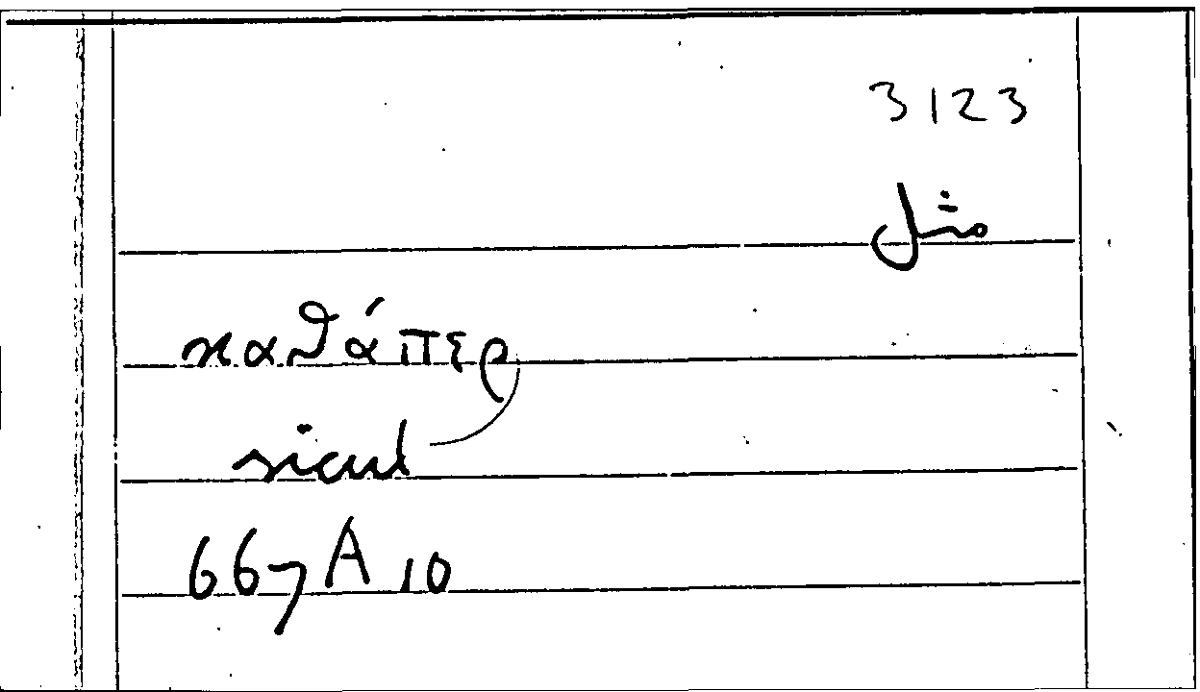 3123
مثل
καθάπερ
sicut
667 A 10